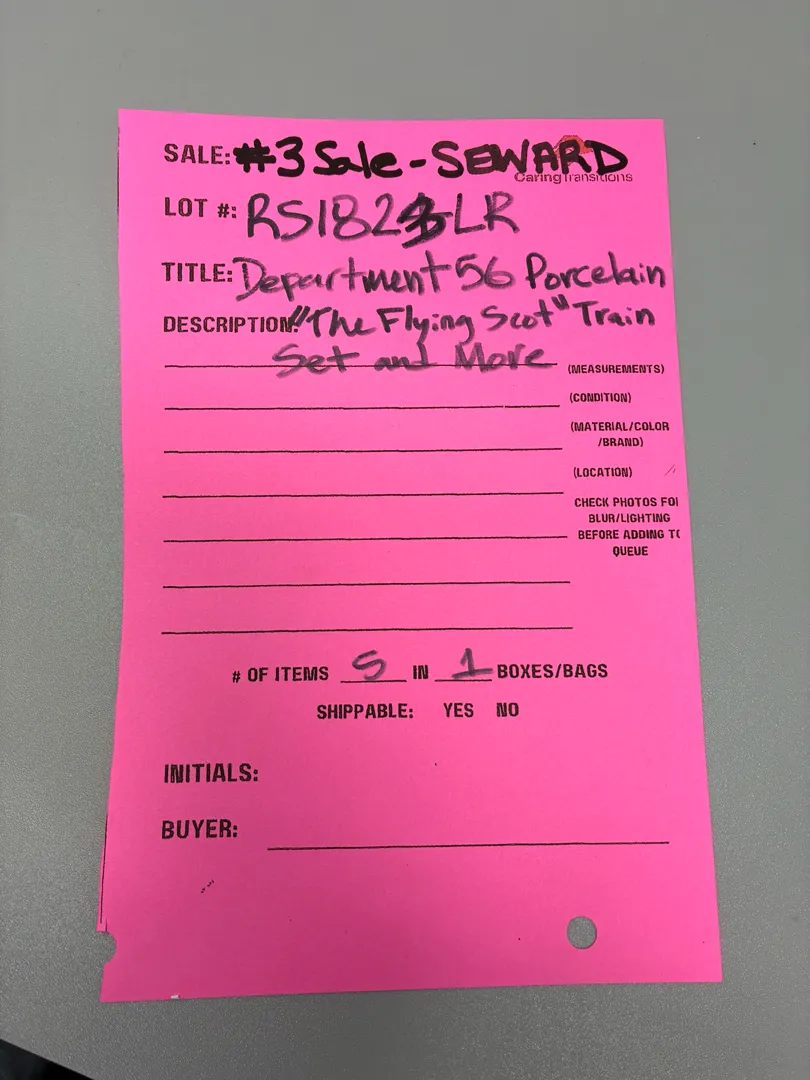 SALE: #3 Sale - SEWARD
CaringTransitions
LOT #: RS1823LR
TITLE: Department 56 Porcelain
DESCRIPTION: "The Flying Scot" Train
Set and More
(MEASUREMENTS)
(CONDITION)
(MATERIAL/COLOR
/BRAND)
(LOCATION)
CHECK PHOTOS FOR
BLUR/LIGHTING
BEFORE ADDING TO
QUEUE
# OF ITEMS 5 IN 1 BOXES/BAGS
SHIPPABLE: YES NO
INITIALS:
BUYER: